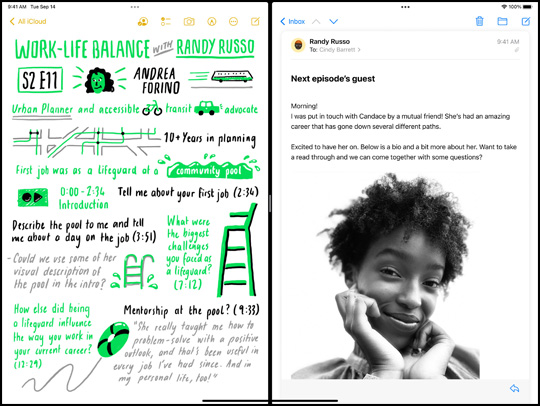 9:41 AM Tue Sep 14
100%
All iCloud
WORK-LIFE BALANCE WITH RANDY RUSSO
S2 E11
ANDREA FORINO
Urban Planner and accessible transit advocate
10+ Years in planning
First job was as a lifeguard at a community pool
0:00 - 2:34
Introduction
Tell me about your first job (2:34)
Describe the pool to me and tell
me about a day on the job (3:51)
- Could we use some of her
visual description of
the pool in the intro?
What were
the biggest
challenges
you faced as
a lifeguard?
(7:12)
How else did being
a lifeguard influence
the way you work in
your current career?
(12:29)
Mentorship at the pool? (9:33)
"She really taught me how to
problem-solve with a positive
outlook, and that's been useful in
every job I've had since. And in
my personal life, too!"
Inbox
Randy Russo
9:41 AM
To: Cindy Barrett
Next episode's guest
Morning!
I was put in touch with Candace by a mutual friend! She's had an amazing
career that has gone down several different paths.
Excited to have her on. Below is a bio and a bit more about her. Want to take
a read through and we can come together with some questions?